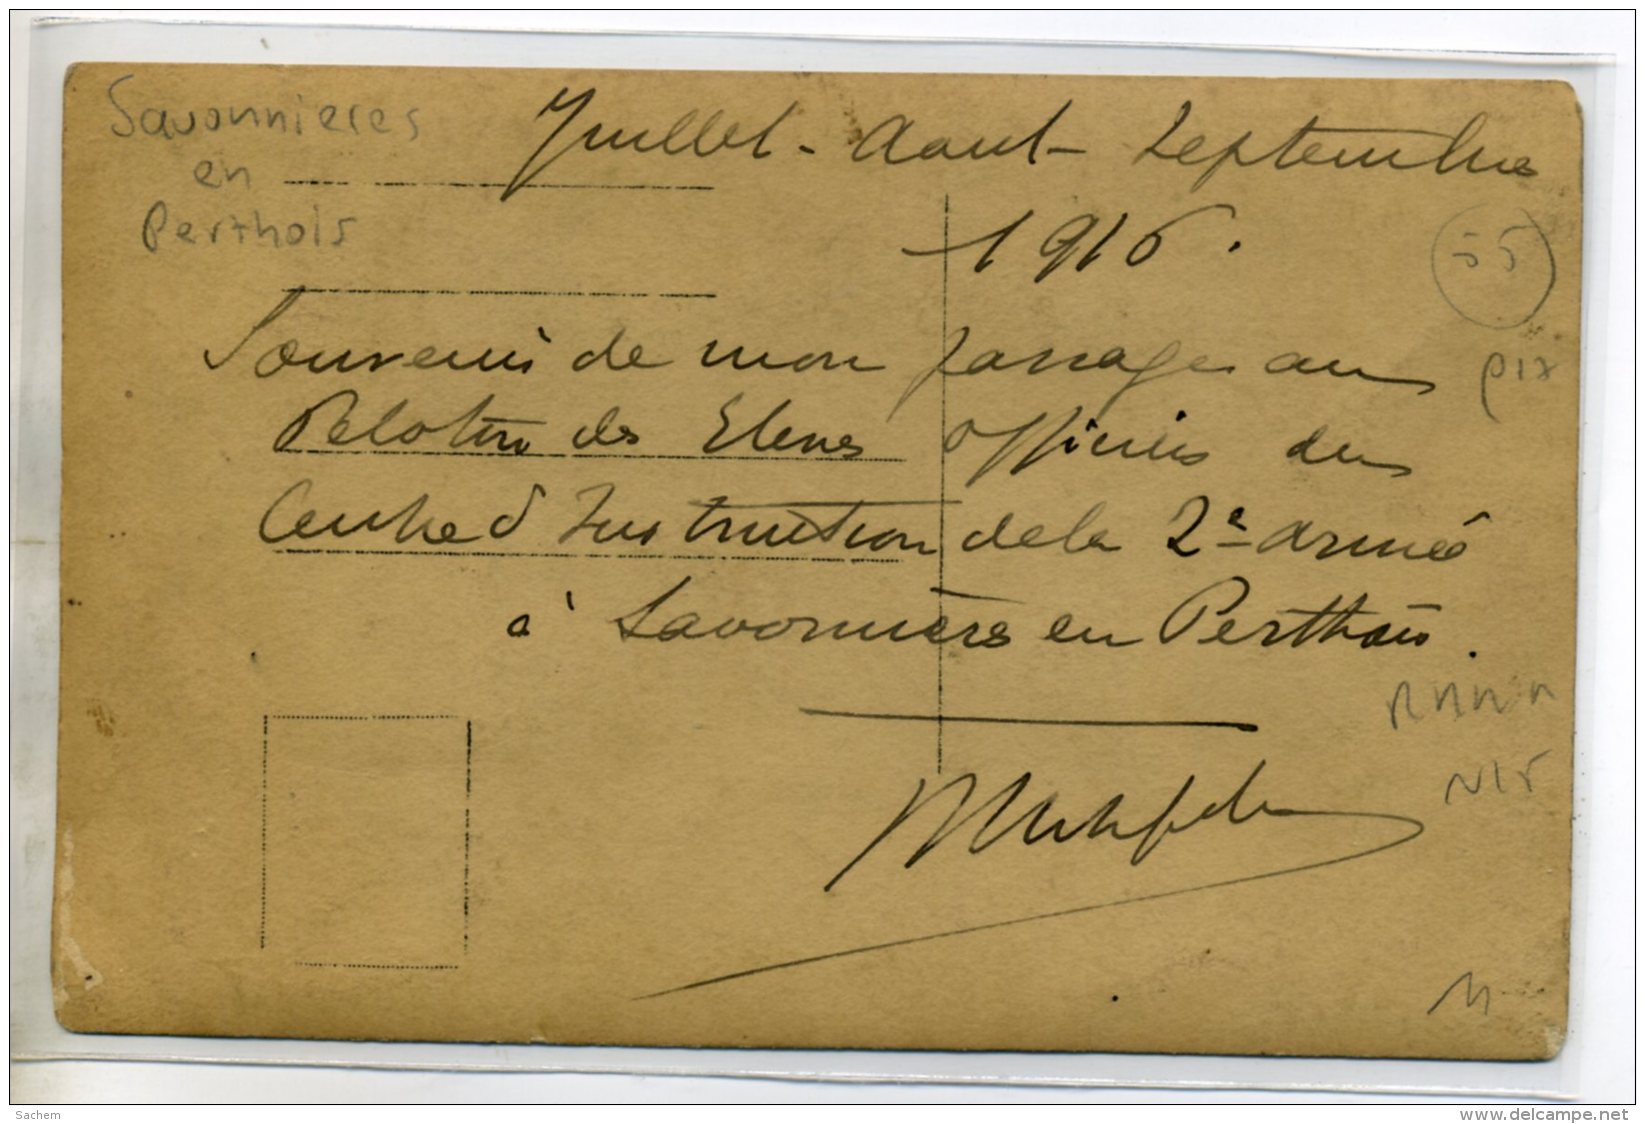 Savonnieres
en
Perthois
Juillet - Aout - Septembre
1916.
55
Souvenir de mon passage au
Peloton des Eleves Officiers du
Centre d'Instruction de la 2e Armée
à Savonnières en Perthois.
Sachem
www.delcampe.net